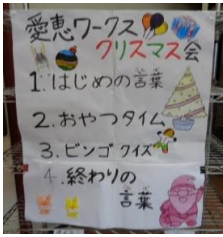 愛恵ワークス
クリスマス会
1.はじめの言葉
2.おやつタイム
3.ビンゴクイズ
4.終わりの
言葉